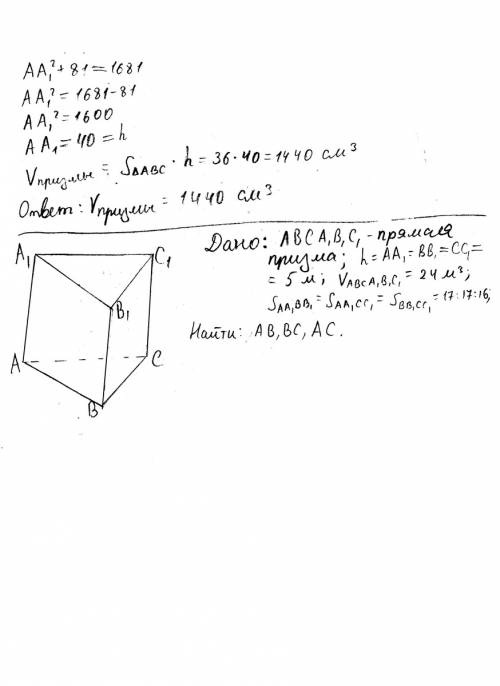 AA₁² + 81 = 1681
AA₁² = 1681 - 81
AA₁² = 1600
AA₁ = 40 = h
Vпризмы = S△ABC · h = 36 · 40 = 1440 см³
Ответ: Vпризмы = 1440 см³
Дано: ABCA₁B₁C₁ - прямая
призма; h = AA₁ = BB₁ = CC₁ =
= 5 м; VABCA₁B₁C₁ = 24 м³;
SAA₁BB₁ = SAA₁CC₁ = SBB₁CC₁ = 17:17:16;
Найти: AB, BC, AC.
A₁ C₁
B₁
A C
B